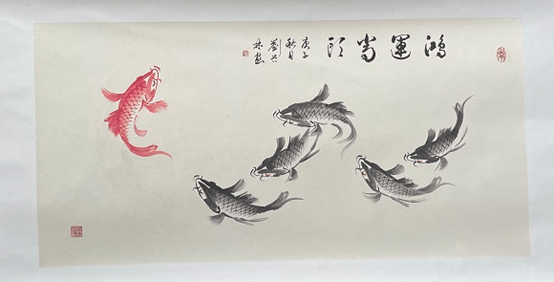 鴻運當頭
庚子
秋月
劉
林畫